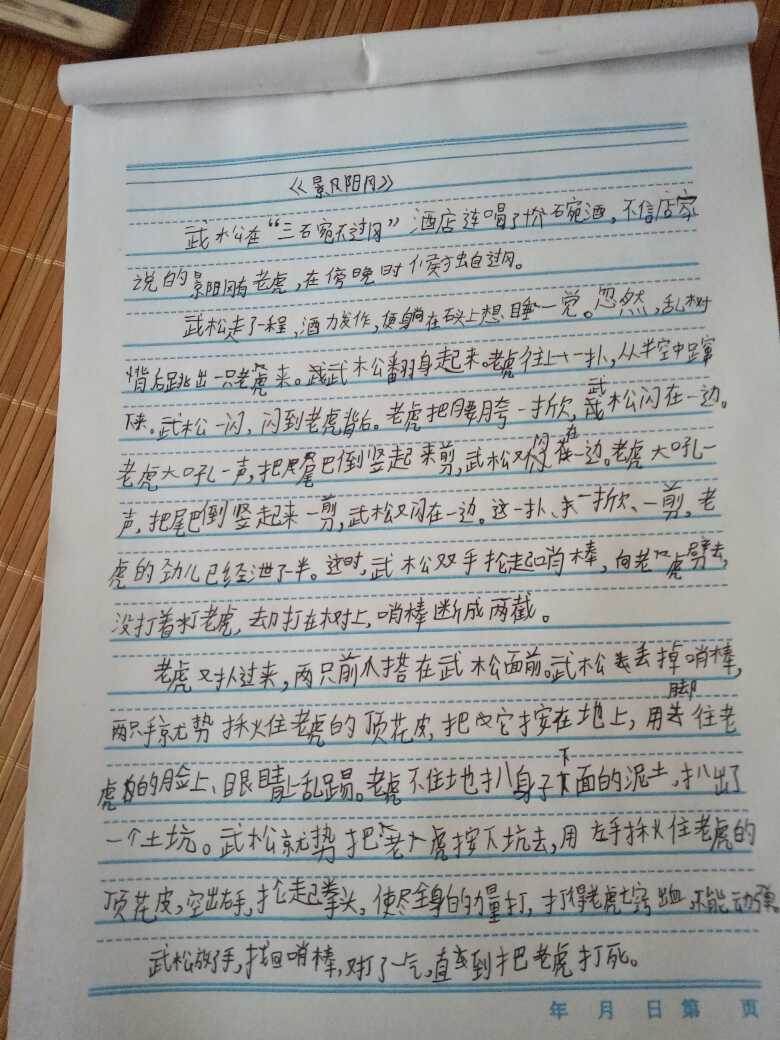 《景阳冈》
武松在“三碗不过冈”酒店连喝了十八碗酒，不信店家
说的景阳冈有老虎，在傍晚时候独自过冈。
武松走了一程，酒力发作，便躺在石头上想睡一觉。忽然，乱树
背后跳出一只老虎来。武松翻身起来。老虎往上一扑，从半空中蹿
下来。武松一闪，闪到老虎背后。老虎把腰胯一掀，武松闪在一边。
老虎大吼一声，把尾巴倒竖起来剪，武松又闪在一边。老虎大吼一
声，把尾巴倒竖起来一剪，武松又闪在一边。这一扑、一掀、一剪，老
虎的劲儿已经泄了半。这时，武松双手抡起哨棒，向老虎劈去，
没打着老虎，却打在树上，哨棒断成两截。
老虎又扑过来，两只前爪搭在武松面前。武松丢掉哨棒，
两只手就势揪住老虎的顶花皮，把它按在地上，用脚往老
虎的脸上、眼睛上乱踢。老虎不住地扒身子下面的泥土，扒出了
一个土坑。武松就势把老虎按下坑去，用左手揪住老虎的
顶花皮，空出右手，抡起拳头，使尽全身的力量打，打得老虎七窍出血，不能动弹。
武松放了手，找回哨棒，又打了一气，直到把老虎打死。
年 月 日 第 页